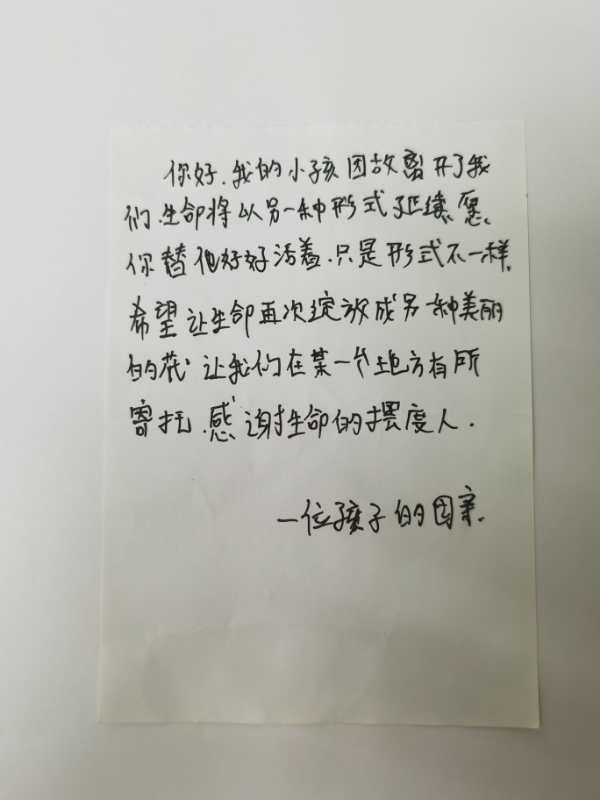 你好.我的小孩因故离开了我
们.生命将以另一种形式延续.愿.
你替他好好活着.只是形式不一样.
希望让生命再次绽放成另一种美丽
的花.让我们在某一个地方有所
寄托.感谢生命的摆度人.
一位孩子的母亲.